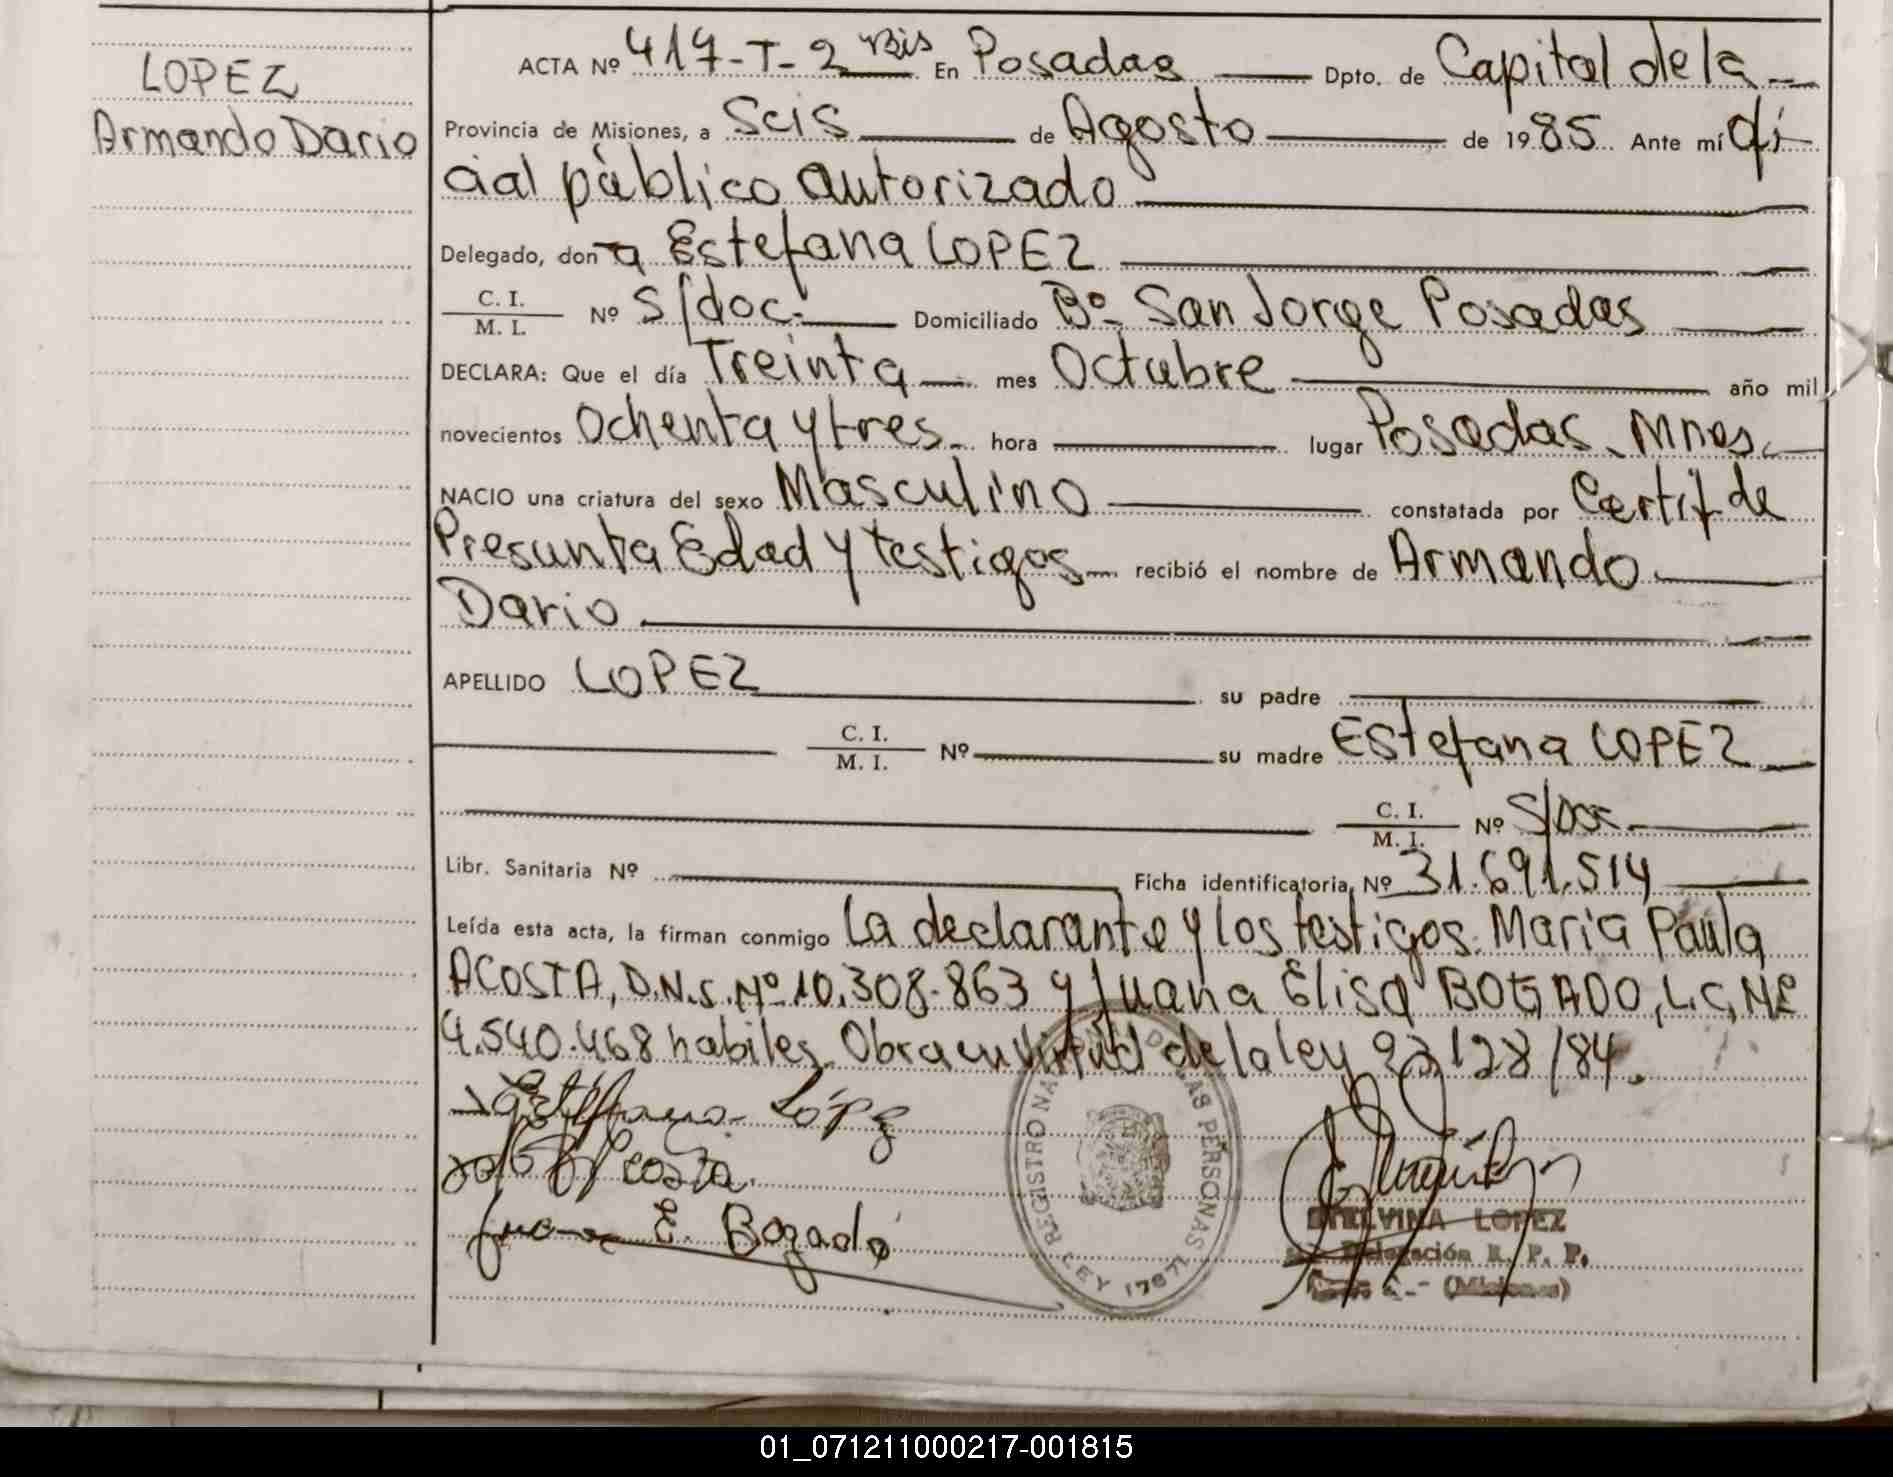 LOPEZ
Armando Dario
ACTA Nº 417-T-2 Bis En Posadas Dpto. de Capital de la
Provincia de Misiones, a Seis de Agosto de 1985 Ante mí ofi
cial público autorizado
Delegado, don a Estefana LOPEZ
C. I.
M. I. Nº S/doc. Domiciliado Bº San Jorge Posadas
DECLARA: Que el día Treinta mes Octubre año mil
novecientos Ochenta y tres hora lugar Posadas, Mnes.
NACIO una criatura del sexo Masculino constatada por Certif de
Presunta Edad y testigos recibió el nombre de Armando
Dario
APELLIDO LOPEZ su padre
C. I.
M. I. Nº su madre Estefana LOPEZ
C. I.
M. I. Nº S/Doc
Libr. Sanitaria Nº Ficha identificatoria Nº 31.691.514
Leída esta acta, la firman conmigo la declarante y los testigos. Maria Paula
ACOSTA, D.N.I. Nº 10.308.863 y Juana Elisa BOGADO, L.C, Nº
4.540.468 habiles. Obra en virtud de la ley 23128/84.
Estefana López
Acosta
Juana E. Bogado
REGISTRO NA DE LAS PERSONAS LEY 17671
ETELVINA LOPEZ
Delegación R. P. P.
(Misiones)
01_071211000217-001815